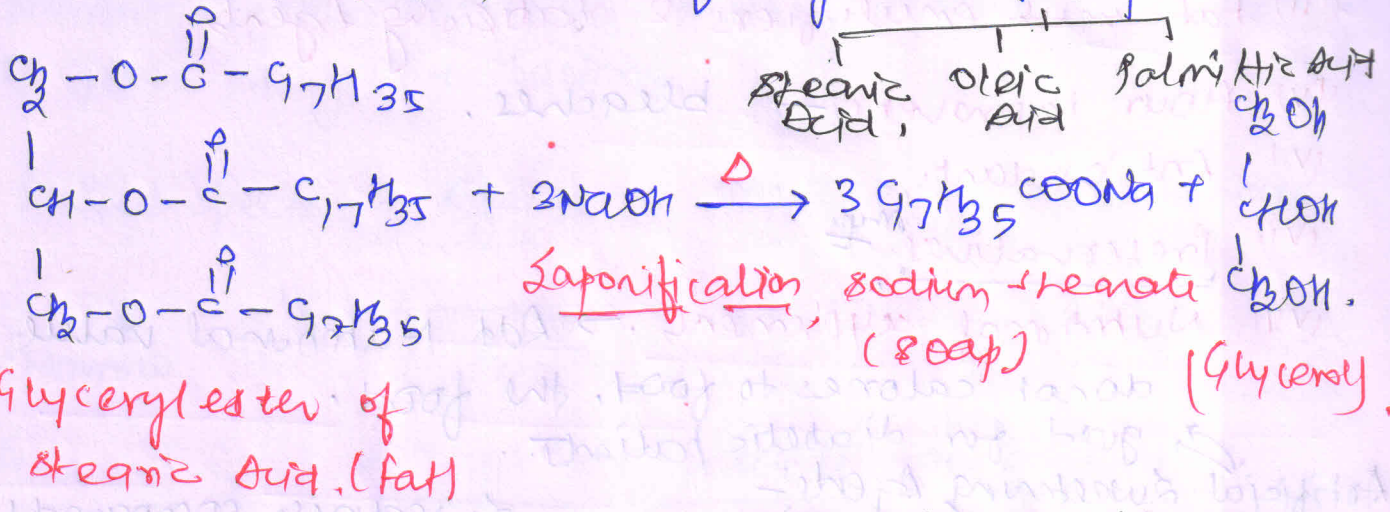 Stearic Acid, Oleic Acid Palmitic Acid
CH2 - O - C - C17H35
O
CH - O - C - C17H35 + 3NaOH Δ → 3 C17H35COONa + CH2OH
O
CHOH
CH2 - O - C - C17H35 Saponification, sodium stearate CH2OH.
O
(soap)
(Glycerol)
Glyceryl ester of
stearic Acid. (fat)